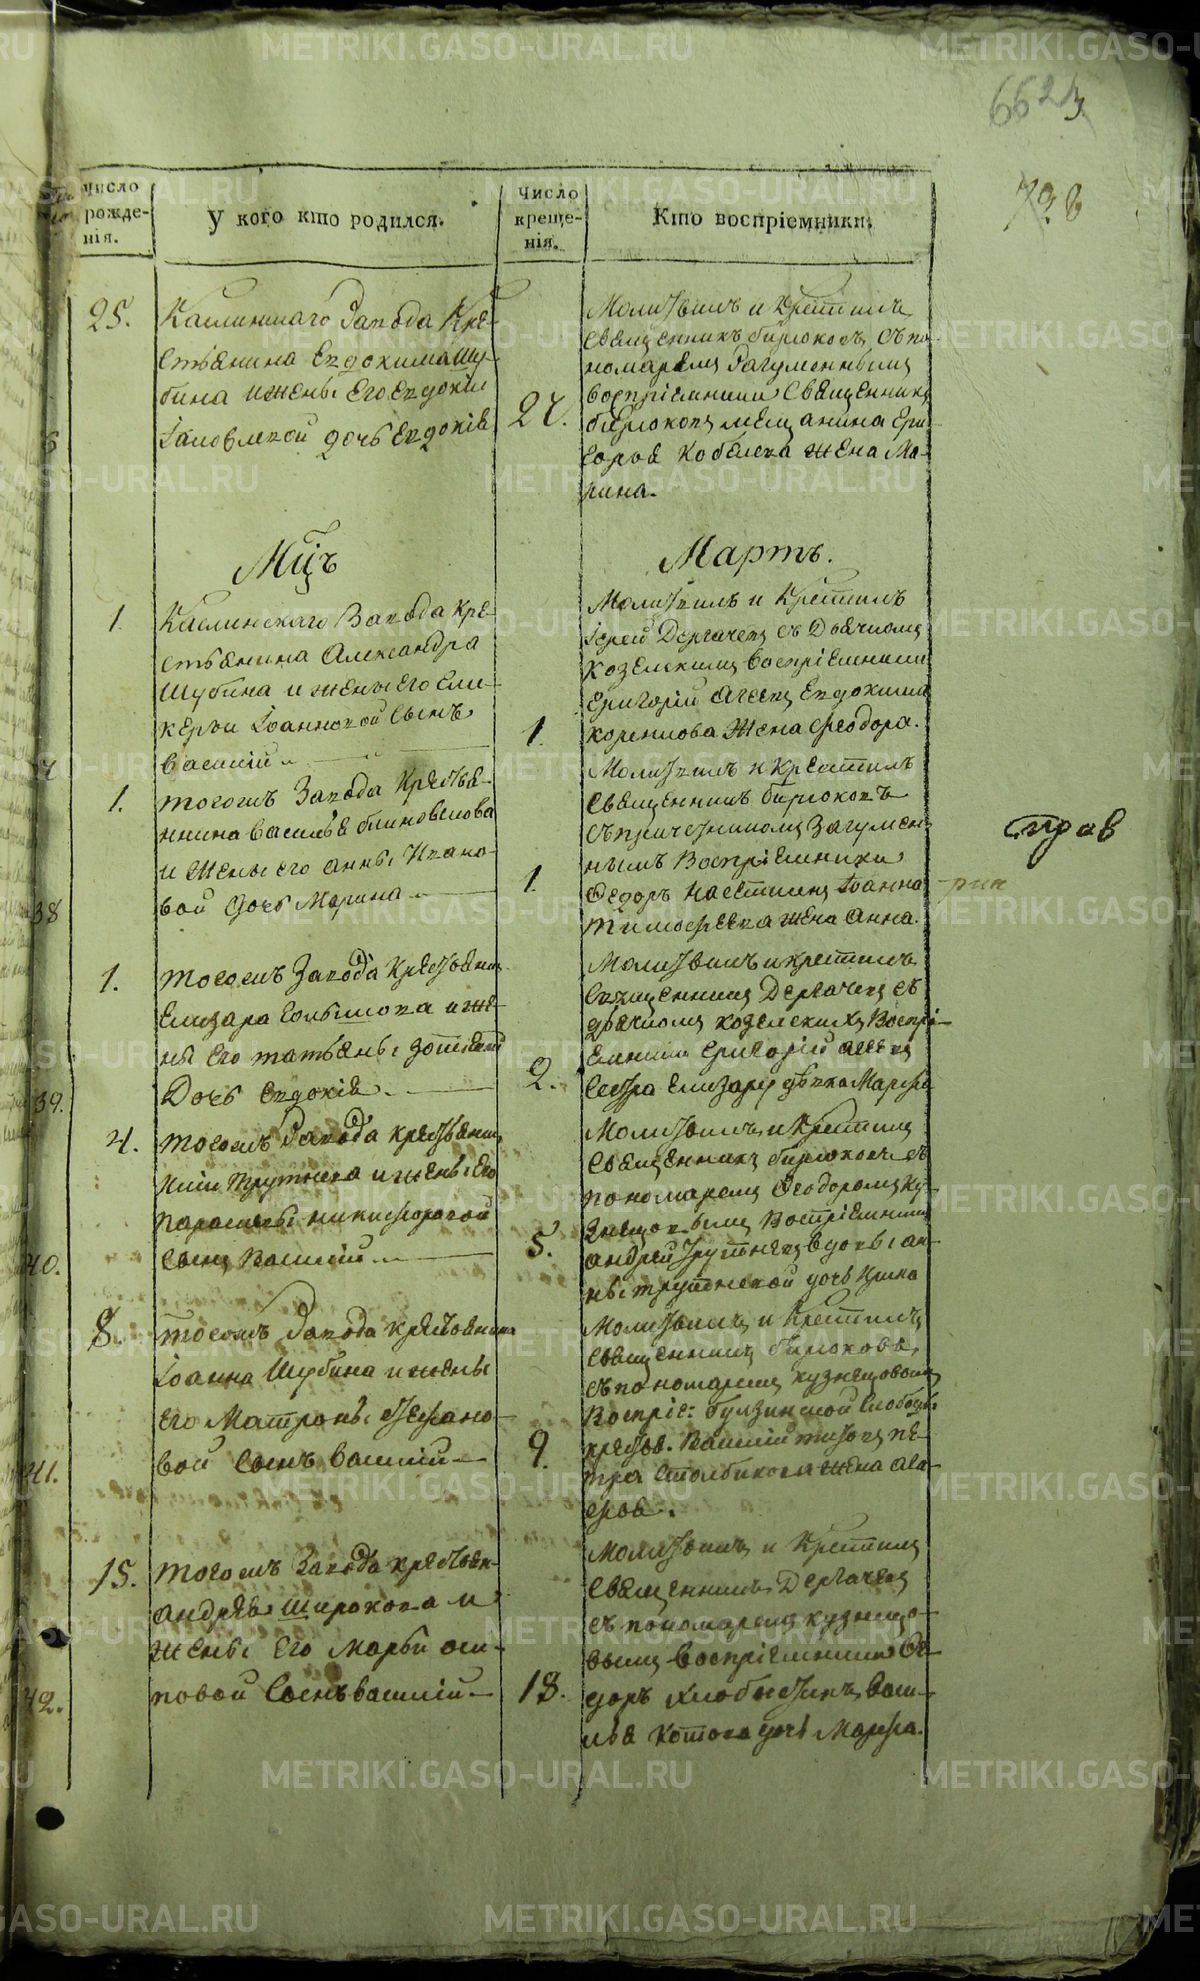 662
Число рожде-нія.
У кого кто родился.
Число креще-нія.
Кто воспріемники.
25.
Каслинскаго Завода Кре-
стьянина Евдокима Шу-
бина и жены его Евдокіи
дочь Евдокія
27.
Молитвилъ и Крестилъ
Священникъ Бирюковъ съ по-
номаремъ Загуменнымъ
воспріемники Священника
Бирюкова мещанина Гри-
горья Кобелева жена Ма-
рина.
Мцъ
Мартъ.
1.
Каслинскаго Завода кре-
стьянина Александра
Шубина и жены его Гли-
керьи Іоанновой сынъ
Василій
1.
Молитвилъ и Крестилъ
Іерей Дергачевъ съ Дьячкомъ
Козелскимъ воспріемники
Григорій Агеевъ Евдокима
жена Феодора.
1.
тогожъ Завода Крестья-
нина Василья Блиновскова
и жены его Анны Ивано-
вой дочь Марина
1.
Молитвилъ и Крестилъ
Священникъ Бирюковъ
съ причетникомъ Загумен-
нымъ Воспріемники
Федоръ Іоанна
Тимофеева жена Анна.
прав
38
1.
тогожъ Завода Крестьянина
Елизара Голышкова и же-
ны его татьяны
Дочь Евдокія
2.
Молитвилъ и крестилъ
Священникъ Дергачевъ съ
дьячкомъ Козелскихъ Воспрі-
емники Григорій Агеевъ
Елизара девка Марфа
39.
4.
тогожъ Завода крестьянина
Трутнева и жены Его
Парасковьи Никифоровой
сынъ Василій
5.
Молитвилъ и Крестилъ
Священникъ Бирюковъ съ
пономаремъ Феодоромъ Ку-
знецовымъ Воспріемники
Андрей Трутневъ вдовы Ан-
ны Трутневой дочь Ирина
40.
8.
тогожъ Завода крестьянина
Іоанна Шубина и жены
его Матроны Стефано-
вой сынъ Василій
9.
Молитвилъ и Крестилъ
Священникъ Бирюковъ
съ пономаремъ Кузнецовымъ
Воспріе: Булзинской Слободы
крестья. Василій Пе-
тра Столбикова жена Ага-
фья.
41.
15.
тогожъ Завода крестьян-
Андрея Широкова и
жены Его Марьи Оси-
повой Сынъ Василій
18.
Молитвилъ и Крестилъ
Священникъ Дергачевъ
съ пономаремъ Кузнецо-
вымъ Воспріемники Фе-
доръ Хлобыстинъ, Васи-
лья Котова дочь Марфа.
42.
METRIKI.GASO-URAL.RU